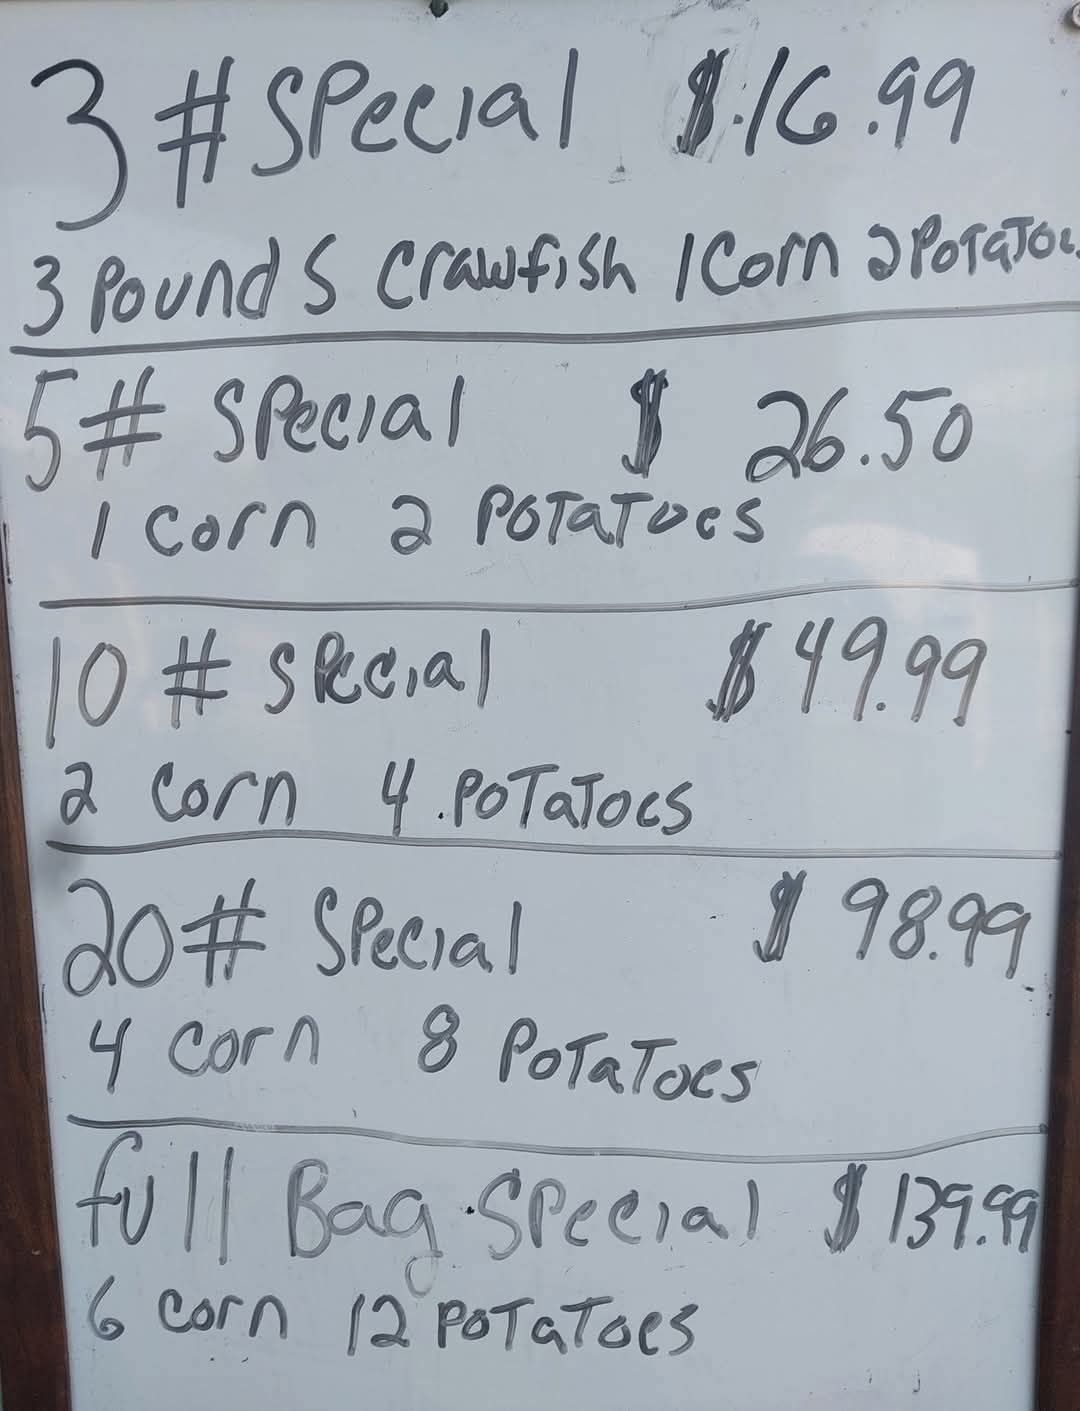 3 # Special $.16.99
3 Pounds Crawfish 1 Corn 2 Potatoes
5 # Special $ 26.50
1 Corn 2 Potatoes
10 # Special $ 49.99
2 Corn 4 Potatoes
20 # Special $ 98.99
4 Corn 8 Potatoes
full Bag Special $ 139.99
6 Corn 12 Potatoes